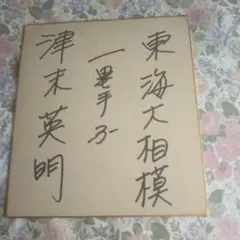 東海大相模
一塁手 3-
津末英明